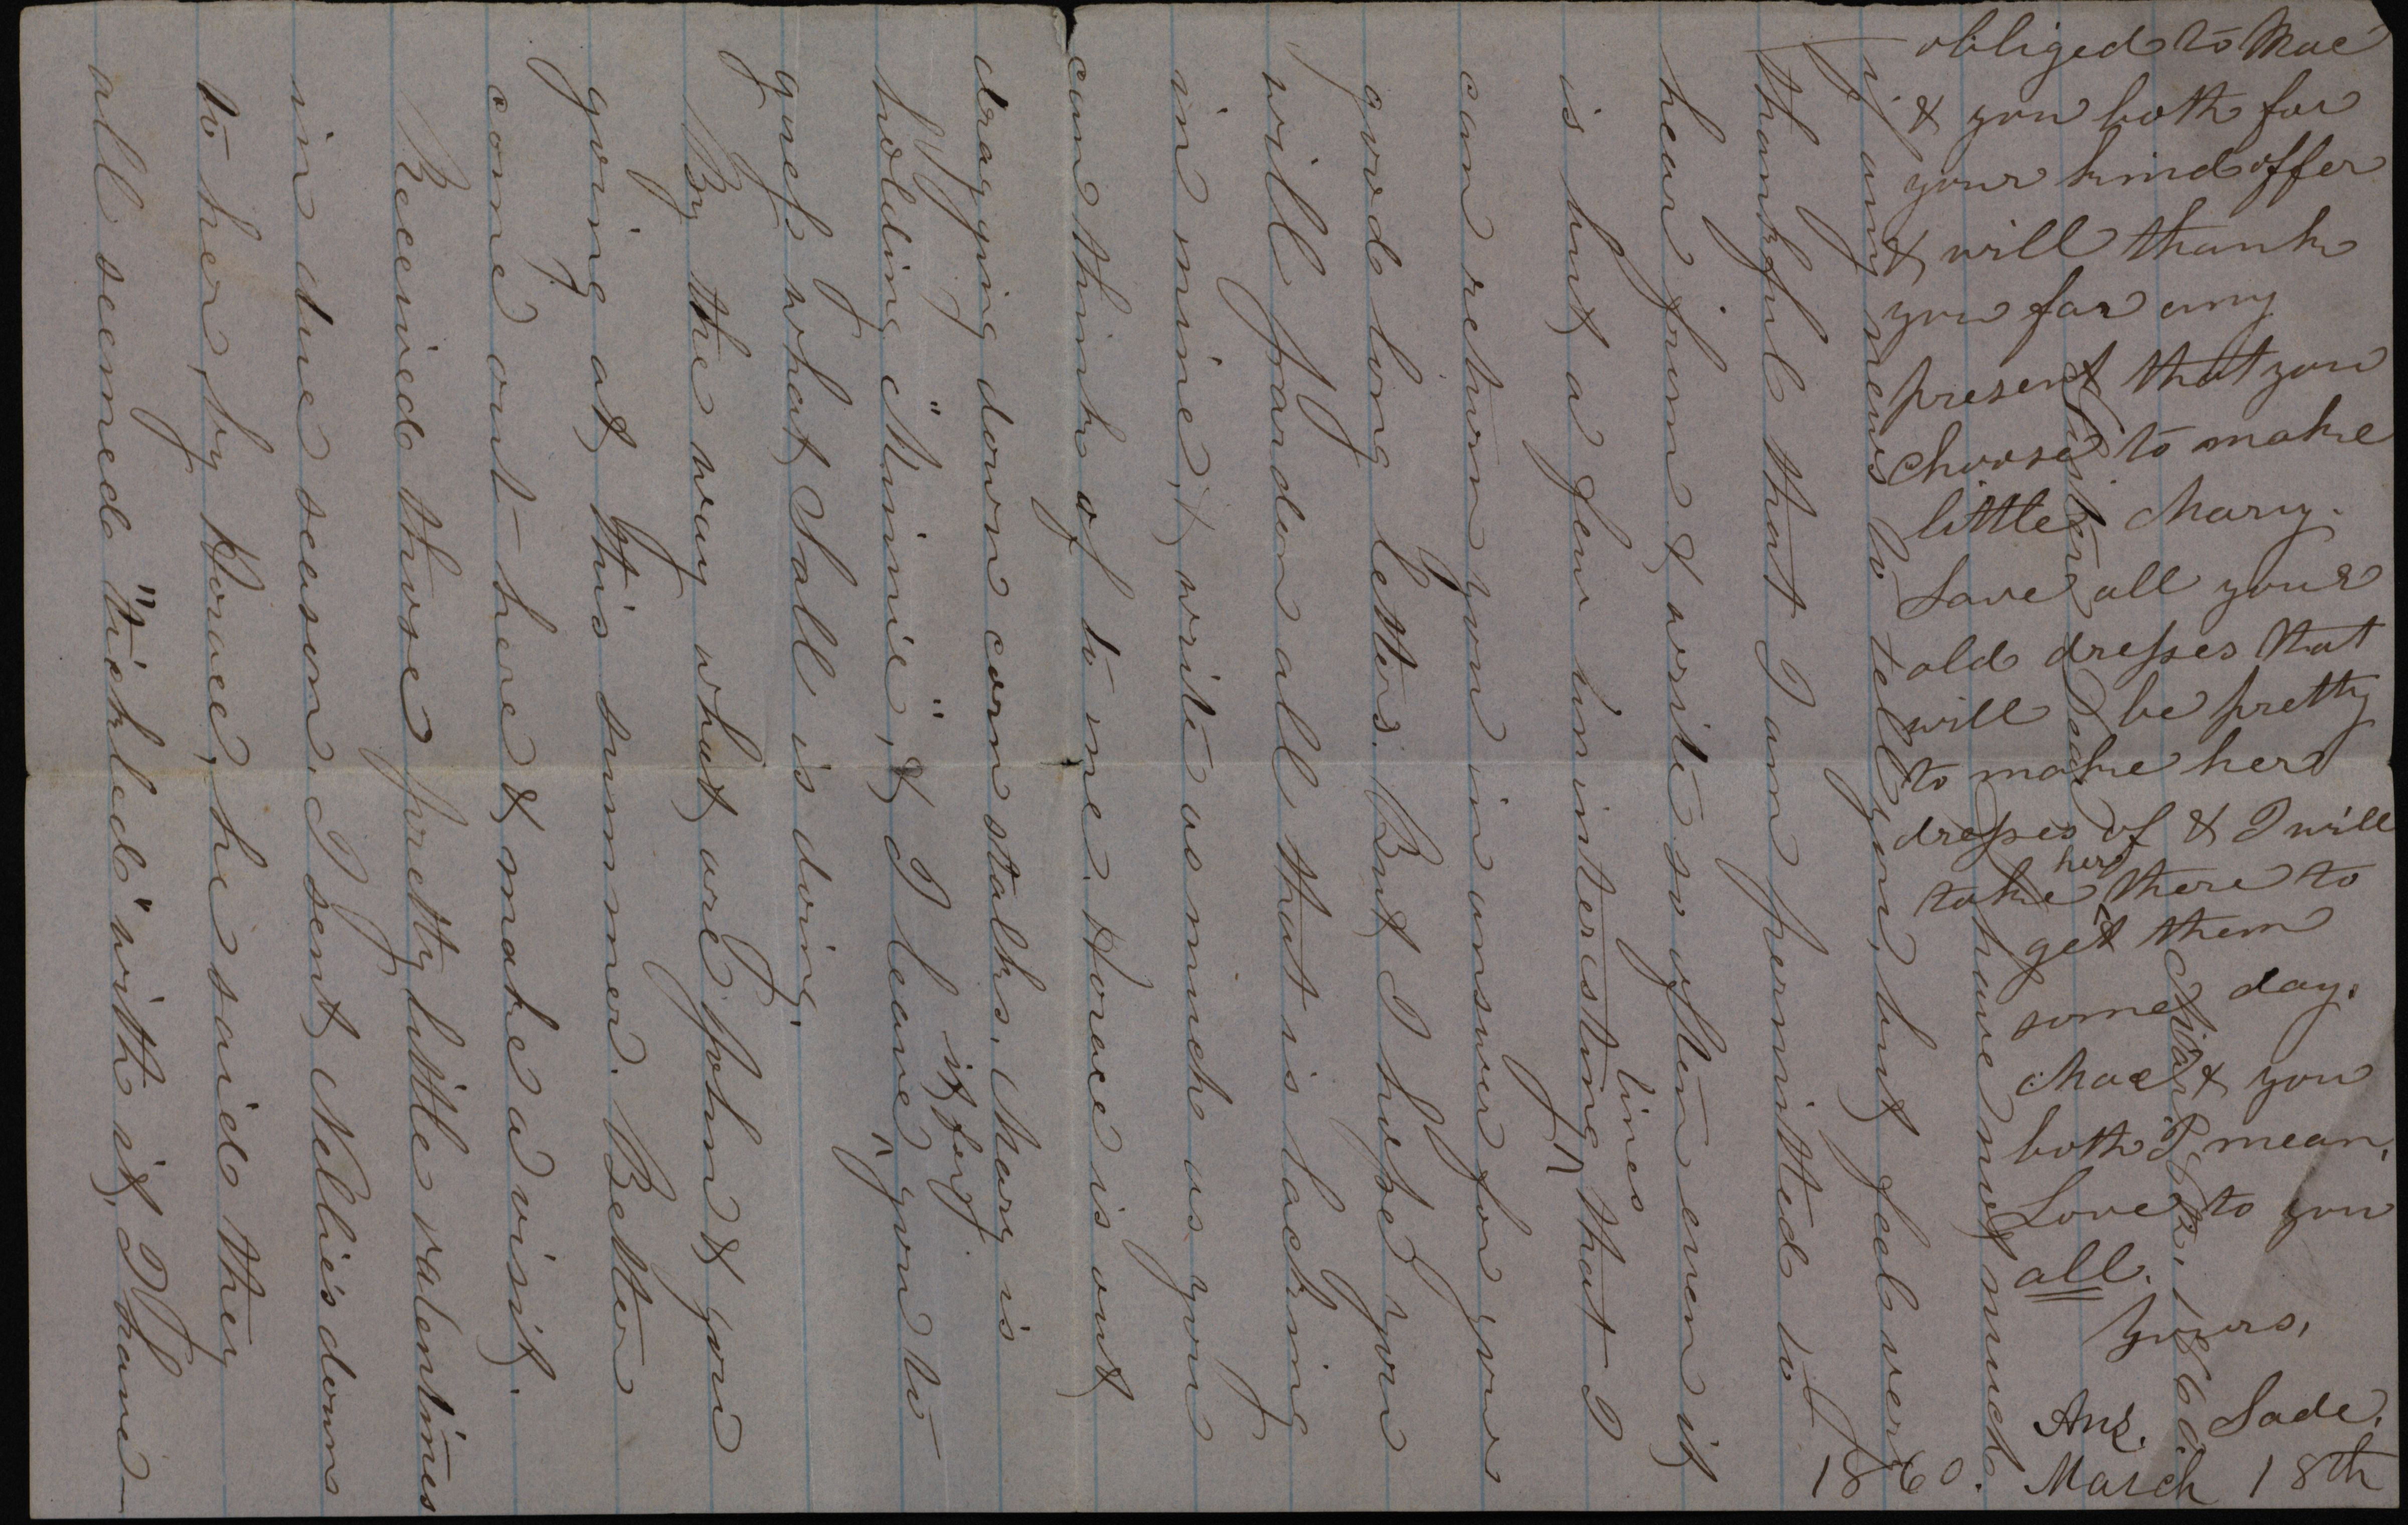 March 12th, 1860.
Sister Dear
I have not much
if any news to tell you, but feel very
thankful that I am permitted to
hear from & write so often even if it
is but a few uninteresting lines that I
can return you in answer for your
good long letters. But I hope you
will pardon all that is lacking
in mine, & write as much as you
can think of to me. Horace is out
dragging down corn stalks. Mary is
holding "Minnie", & I leave you to
guess what Sall is doing, "if fengy"
By the way what are John & you
going at this summer. Better
come out here & make a visit.
Received those pretty little valentines
in due season. I sent Nellie's down
to her, by Horace, he said they
all seemed "tickled" with it, I have
obliged to Mae
& you both for
your kind offer
& will thank
you for any
present that you
choose to make
little Mary.
Save all your
old dresses that
will be pretty
to make her
dresses of & I will
take her there to
get them
some day.
Mae & you
both I mean.
Love to you
all.
Yours,
Sade.
Ans. March 18th
1860.